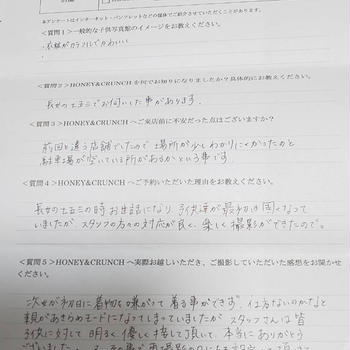 ※アンケートはインターネット・パンフレットなどの媒体でご紹介させていただくことがあります。
＜質問１＞一般的な子供写真館のイメージをお教えください。
・衣裳がカラフルでかわいい
＜質問２＞HONEY&CRUNCHを何でお知りになりましたか？具体的にお教えください。
長女の七五三でお伺いした事があります。
＜質問３＞HONEY&CRUNCHへご来店前に不安だった点はございますか？
前回と違う店舗でしたので場所が少しわかりにくかったのと
駐車場が空いている所があるかという事です
＜質問４＞HONEY&CRUNCHへご予約いただいた理由をお教えください。
長女の七五三の時お世話になり、子供達が最初は固くなって
いましたが、スタッフの方々の対応が良く、楽しく撮影ができたので。
＜質問５＞HONEY&CRUNCHへ実際お越しいただき、ご撮影していただいた感想をお聞かせ
ください。
次女が初日に着物を嫌がって着る事ができず、仕方ないのかなと
親があきらめモードになってしまっていましたが スタッフさんは皆
子供に対して明るく優しく接して頂いて、本当にありがとう
ございました